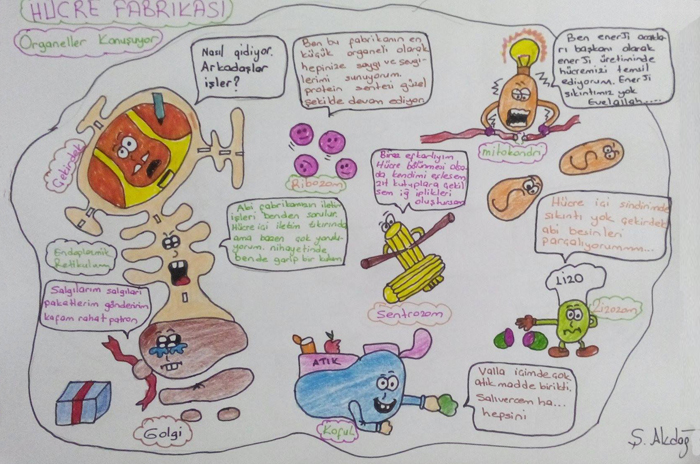 HÜCRE FABRİKASI
Organeller Konuşuyor
Nasıl gidiyor.
Arkadaşlar
işler?
Ben bu fabrikanın en
küçük organeli olarak
hepinize saygı ve sevgi-
lerimi sunuyorum.
protein sentezi güzel
şekilde devam ediyor.
Ben enerji
başkanı olarak
enerji üretiminde
hücremizi temsil
ediyorum. Enerji
sıkıntımız yok
Evelallah....
Çekirdek
Ribozom
mitokondri
Biraz
Hücre bölünmesi
da kendimi eşlesem
zıt kutuplara çekil
sem iğ iplikleri
oluştursam
Abi fabrikamızın iletim
işleri benden sorulur.
Hücre içi iletim tıkırında
ama bazen çok
yorum. nihayetinde
bende garip bir kulum
Hücre içi sindirimde
sıkıntı yok çekirdek
abi besinleri
parçalıyorummm...
Endoplazmik
Retikulum
Salgılarım salgıları
paketlerim gönderirim
kafam rahat patron
Sentrozom
LİZO
Lizozom
ATIK
Valla içimde çok
atık madde birikti.
Salıversem ha...
hepsini
Golgi
Koful
Ş. Akdağ